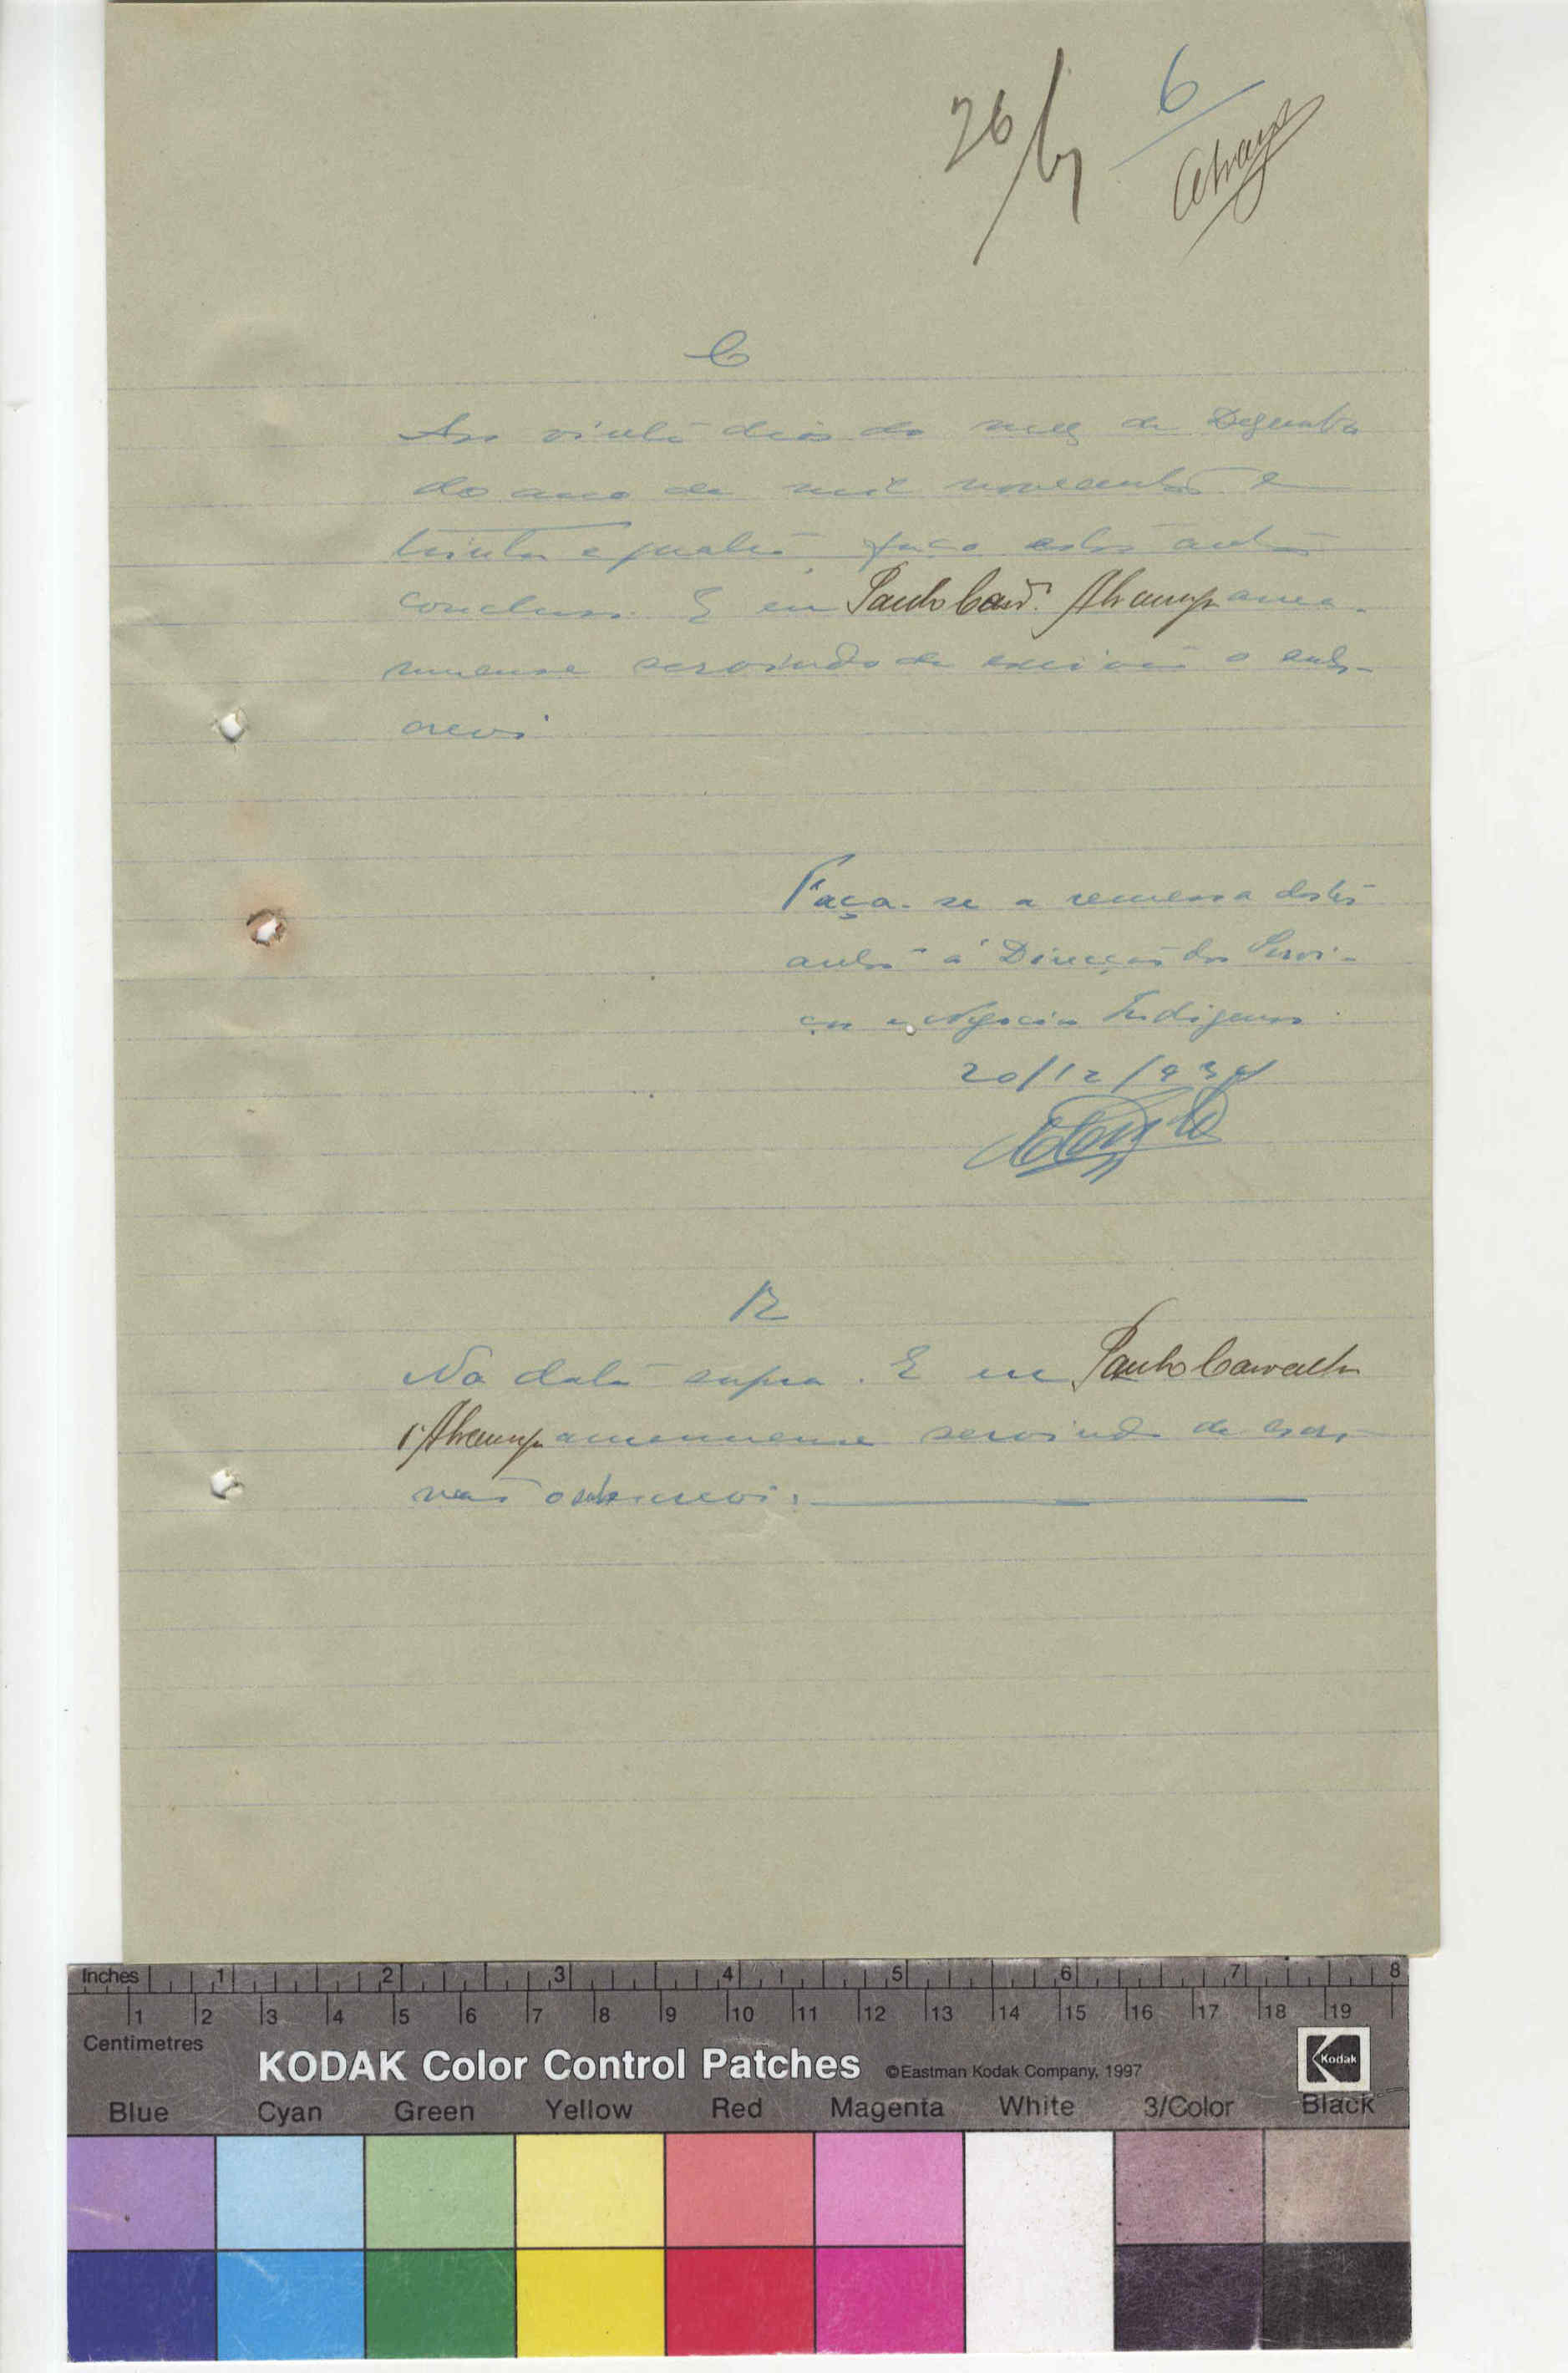 26
6
C
Aos vinte dias do mez de Dezembro
do ano de mil novecentos e
trinta e quatro, faço estes autos
conclusos. E eu Paulo Carv.º ama-
nuense servindo de escrivão o subs-
crevi
Faça-se a remessa destes
autos á Direcção dos Servi-
ços e Negocios Indigenas.
20/12/934
R
Na data supra. E eu Paulo Carvalho
amanuense servindo de escri-
vão o subscrevi:
Inches 1 2 3 4 5 6 7 8
1 2 3 4 5 6 7 8 9 10 11 12 13 14 15 16 17 18 19
Centimetres
KODAK Color Control Patches ©Eastman Kodak Company, 1997 Kodak
Blue Cyan Green Yellow Red Magenta White 3/Color Black